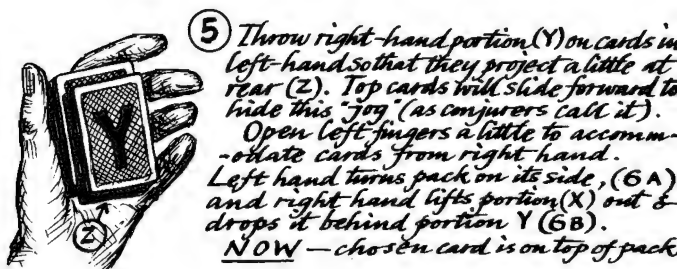 5 Throw right-hand portion (Y) on cards in
left-hand so that they project a little at
rear (Z). Top cards will slide forward to
hide this "jog" (as conjurers call it).
Open left fingers a little to accomm-
-odate cards from right hand.
Left hand turns pack on its side, (6A)
and right hand lifts portion (X) out &
drops it behind portion Y (6B).
NOW — chosen card is on top of pack
Y
Z